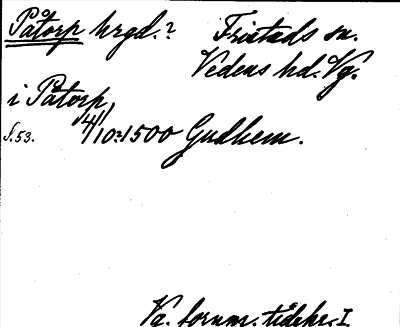 Påtorp hrgd.? Fristads sn.
Vedens hd. Vg.
i Påtorp
s. 53. 4/10 1500 Gudhem.
Vg. fornm. tidskr. I